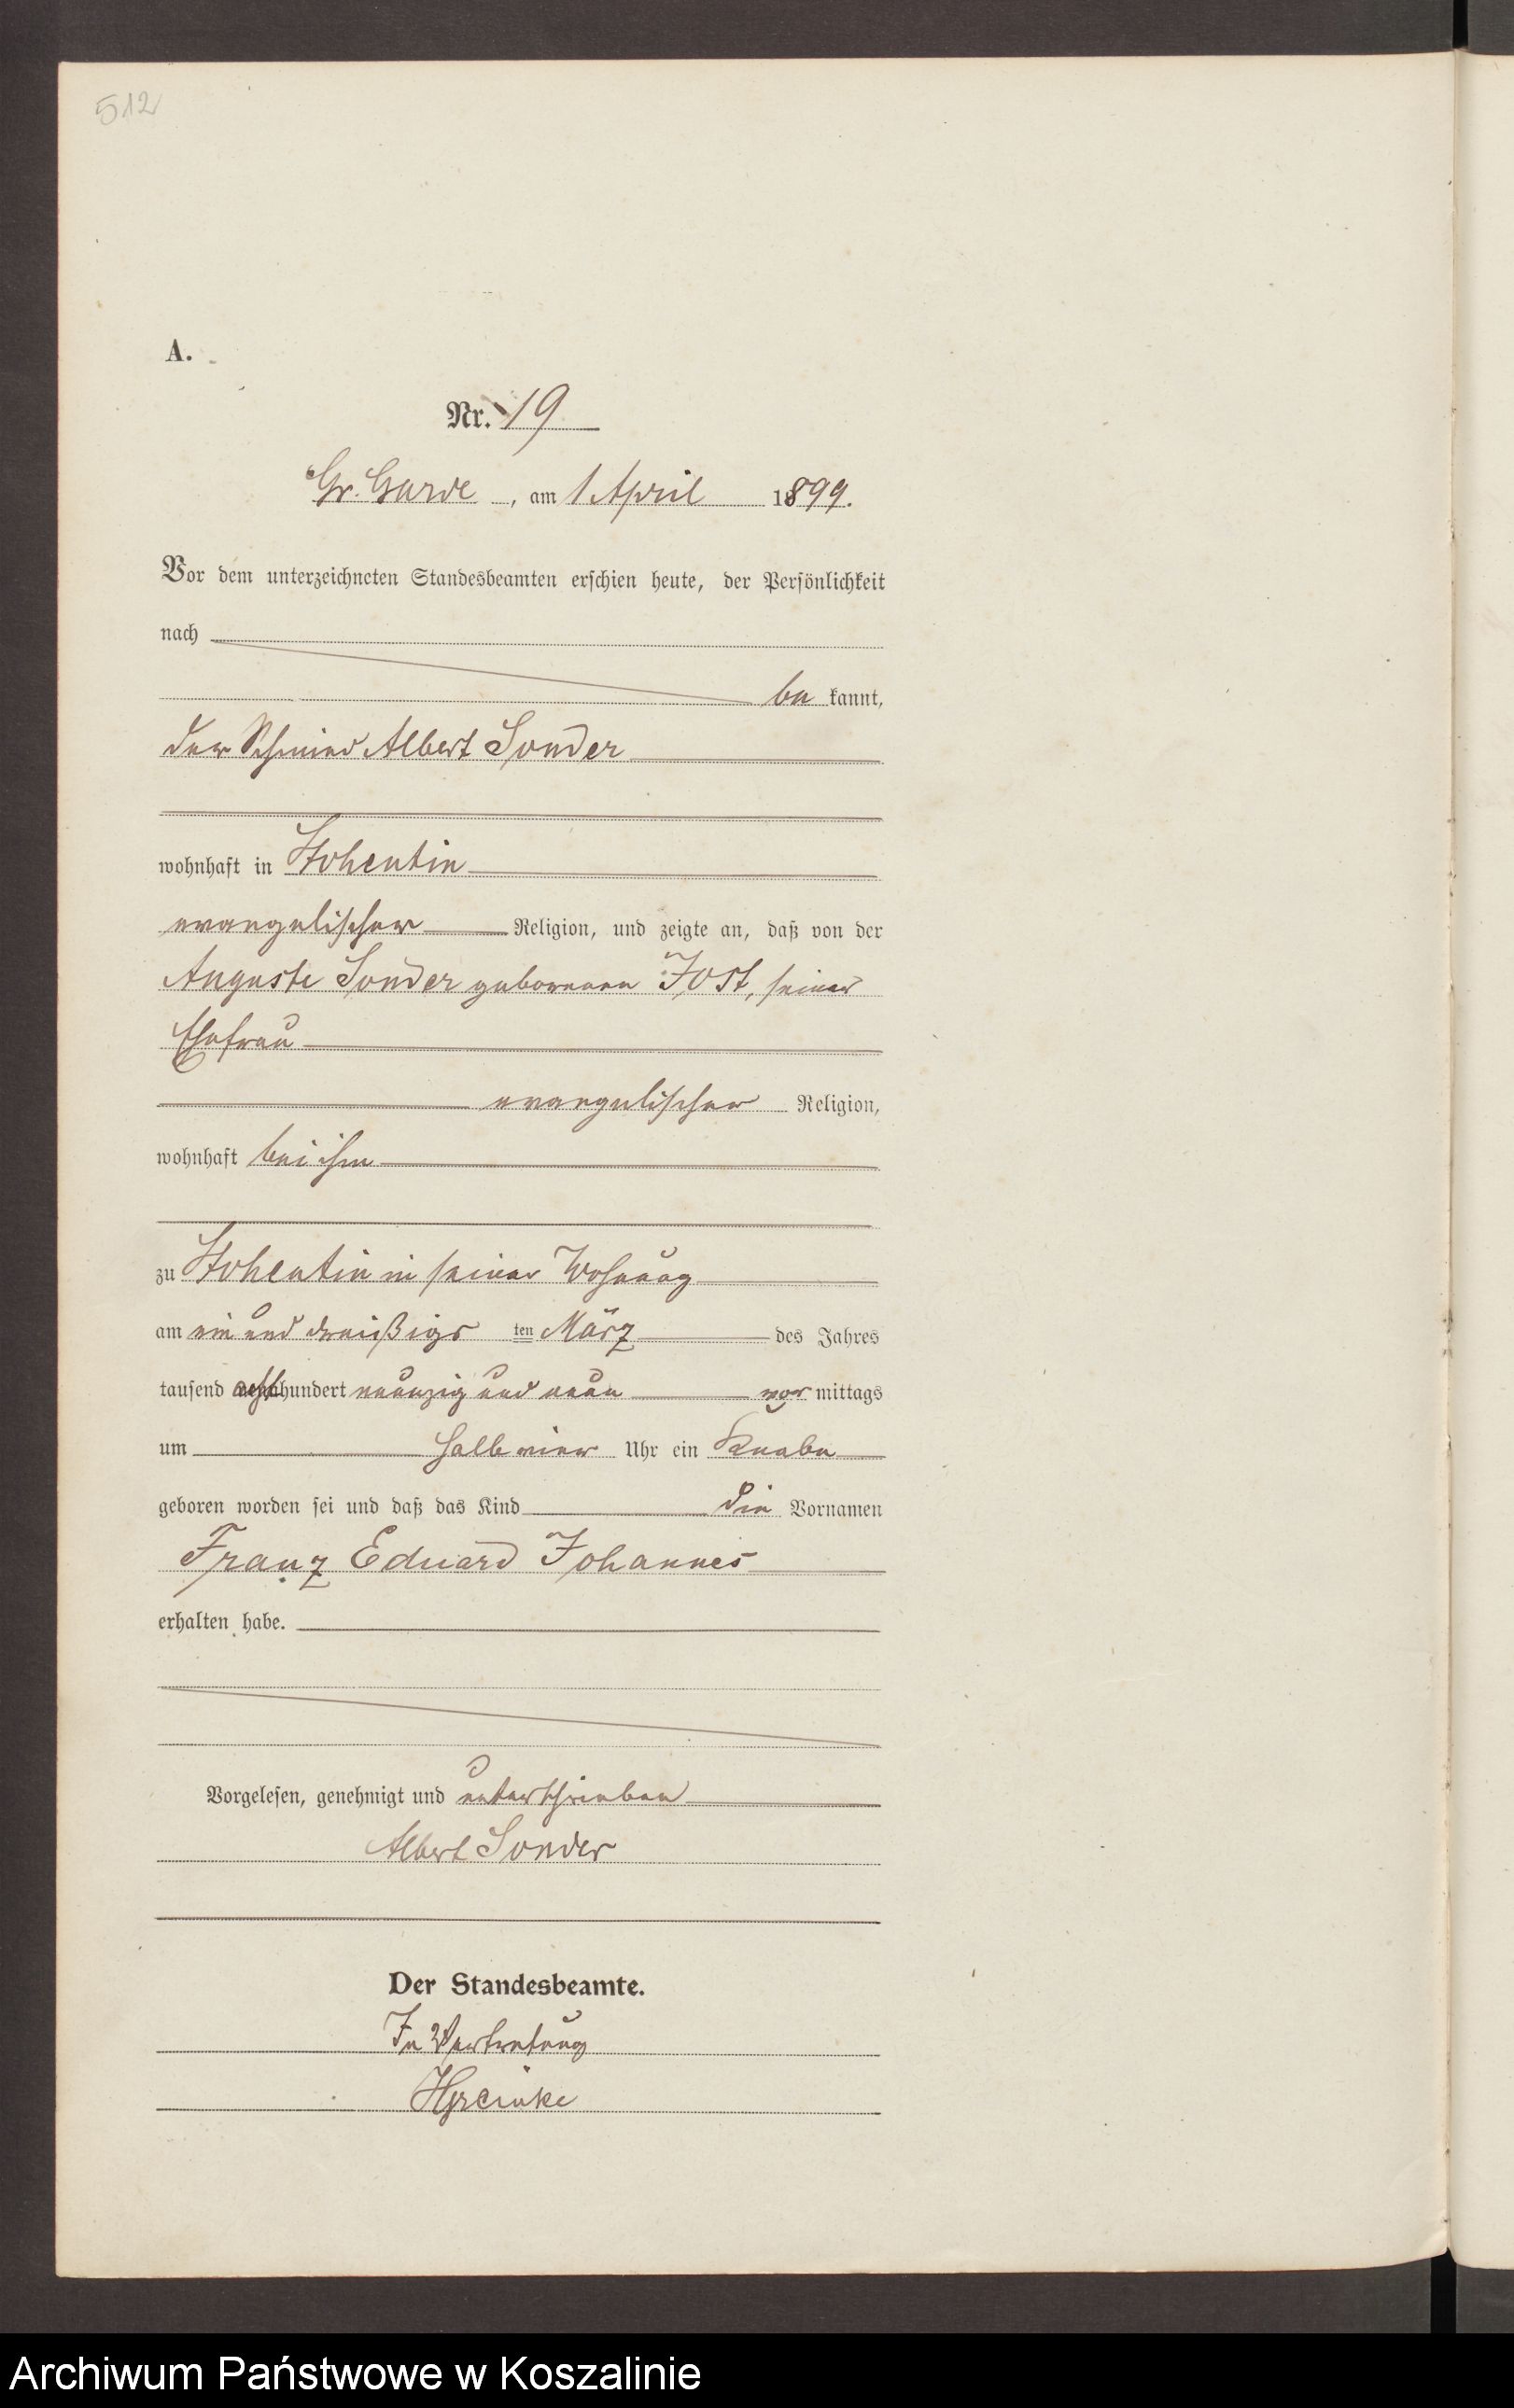 512
A.
Nr. 19
Gr. Garde, am 1 April 1899.
Vor dem unterzeichneten Standesbeamten erschien heute, der Persönlichkeit
nach
be kannt,
der Schmied Albert Sonder
wohnhaft in Stohentin
evangelischer Religion, und zeigte an, daß von der
Auguste Sonder geborenen Jost, seiner
Ehefrau
evangelischer Religion,
wohnhaft bei ihm
zu Stohentin in seiner Wohnung
am ein und dreißigs ten März des Jahres
tausend achthundert neunzig und neun vor mittags
um halb vier Uhr ein Knabe
geboren worden sei und daß das Kind die Vornamen
Franz Eduard Johannes
erhalten habe.
Vorgelesen, genehmigt und unterschrieben
Albert Sonder
Der Standesbeamte.
In Vertretung
Archiwum Państwowe w Koszalinie